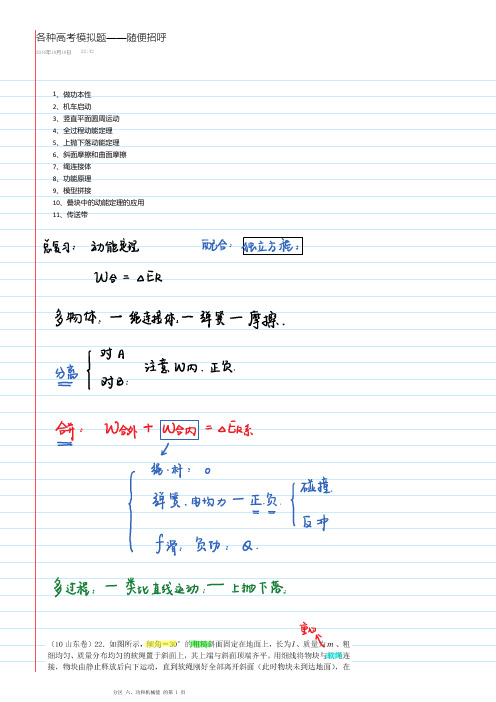 各种高考模拟题——随便招呼
2018年10月18日 22:42
1、做功本性
2、机车启动
3、竖直平面圆周运动
4、全过程动能定理
5、上抛下落动能定理
6、斜面摩擦和曲面摩擦
7、绳连接体
8、功能原理
9、模型拼接
10、叠块中的动能定理的应用
11、传送带
总复习： 动能定理 配合：独立方程：
W合 = ΔEk
多物体：一绳连接体，一弹簧一摩擦.
分离
对A
对B：
注意W内.正负.
合并： W合外 + W合内 = ΔEk系
绳.杆：0
弹簧.电场力 — 正.负.
碰撞.
反冲
f滑：负功：Q.
多过程：一类比直线运动：一上抛下落.
重心
（10山东卷）22．如图所示，倾角=30°的粗糙斜面固定在地面上，长为l、质量为m、粗
细均匀、质量分布均匀的软绳置于斜面上，其上端与斜面顶端齐平。用细线将物块与软绳连
接，物块由静止释放后向下运动，直到软绳刚好全部离开斜面（此时物块未到达地面），在
分区 六、功和机械能 的第 1 页